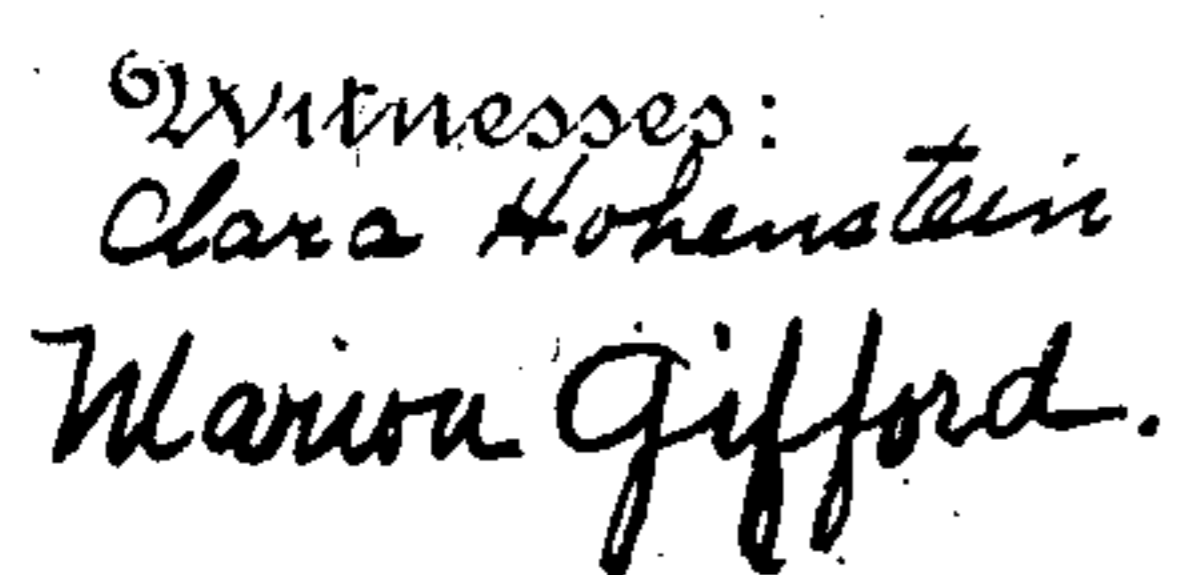 Witnesses:
Clara Hohenstein
Marion Gifford.